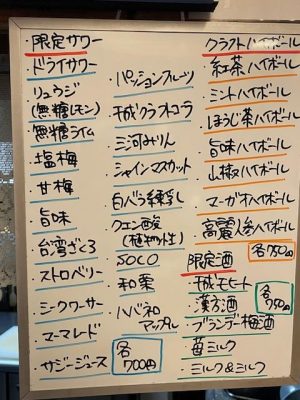 ・限定サワー
・ドライサワー
・リュウジ
(無糖レモン)
・無糖ライム
・塩梅
・甘梅
・旨味
・台湾ざくろ
・ストロベリー
・シークワーサー
・マーマレード
・サジージュース
・パッションフルーツ
・干城クラフトコラ
・三河みりん
・シャインマスカット
・白バラ練乳し
・クエン酸
・SOCO
・和栗
・ハバネロ
アップル
各
700円
クラフトハイボール
・紅茶ハイボール
・ミントハイボール
・ほうじ茶ハイボール
・旨味ハイボール
・山椒ハイボール
・マーガオハイボール
・高麗人参ハイボール
各750円
限定酒
・干城モヒート
・漢方酒
・ブランデー梅酒
・苺ミルク
・ミルク&ミルク
各
750円